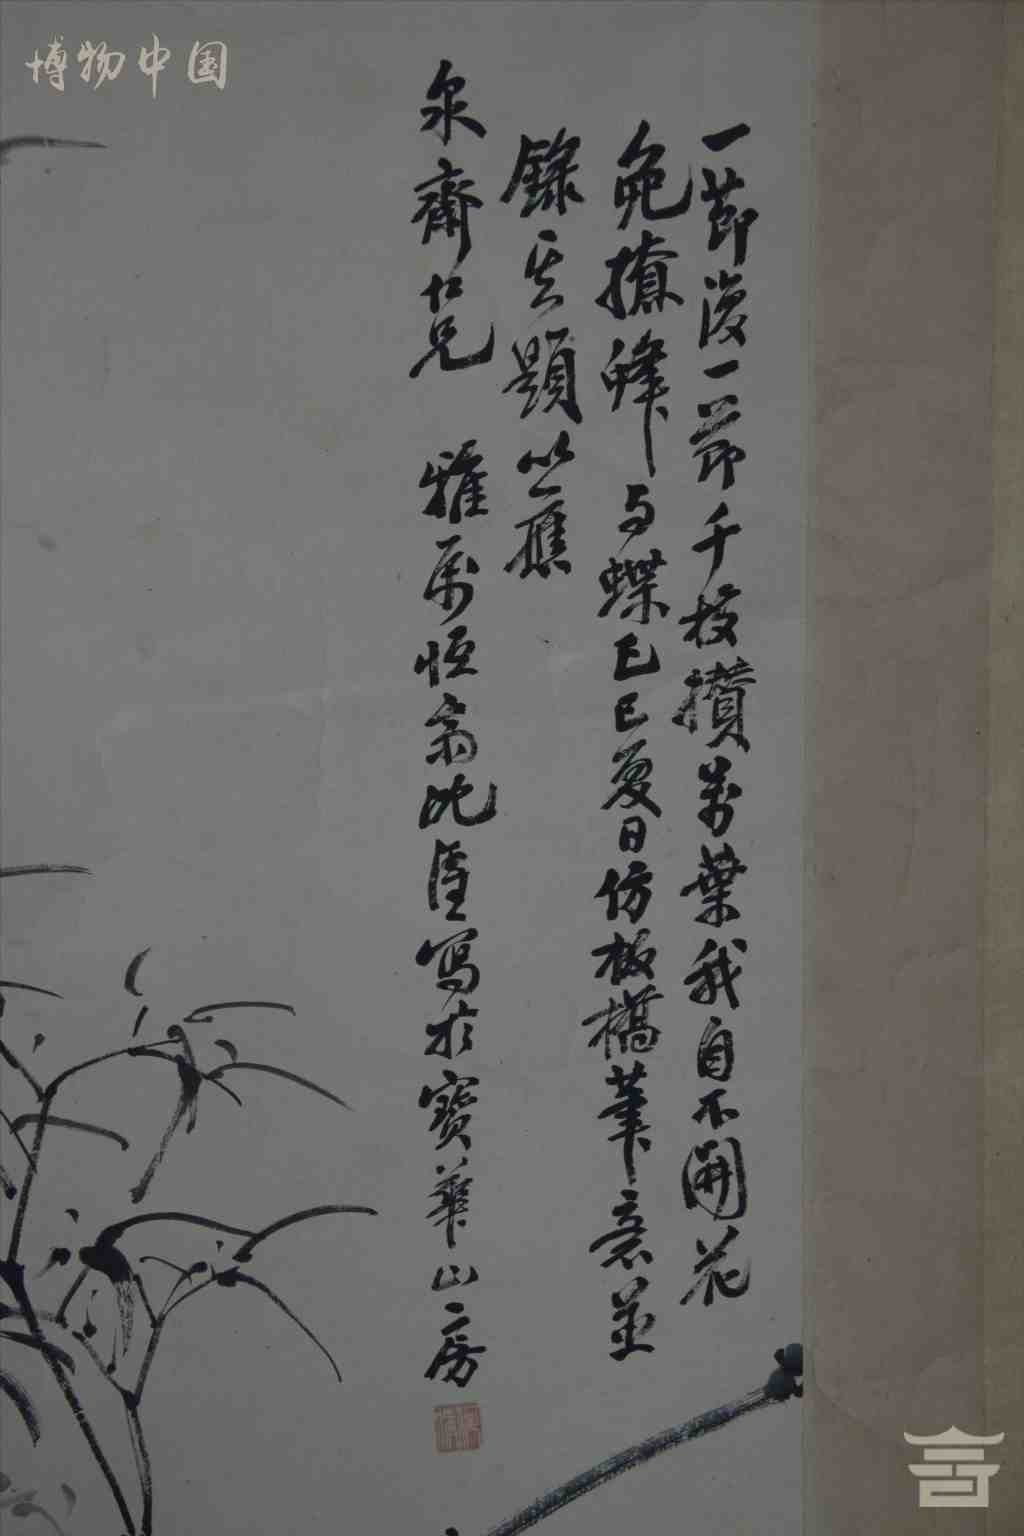 博物中国
一節復一節千枝攢萬葉我自不開花
免撩蜂与蝶己巳夏日仿板橋筆意並
錄其題以應
泉齋仁兄 雅属恒沈寫於寶華山房